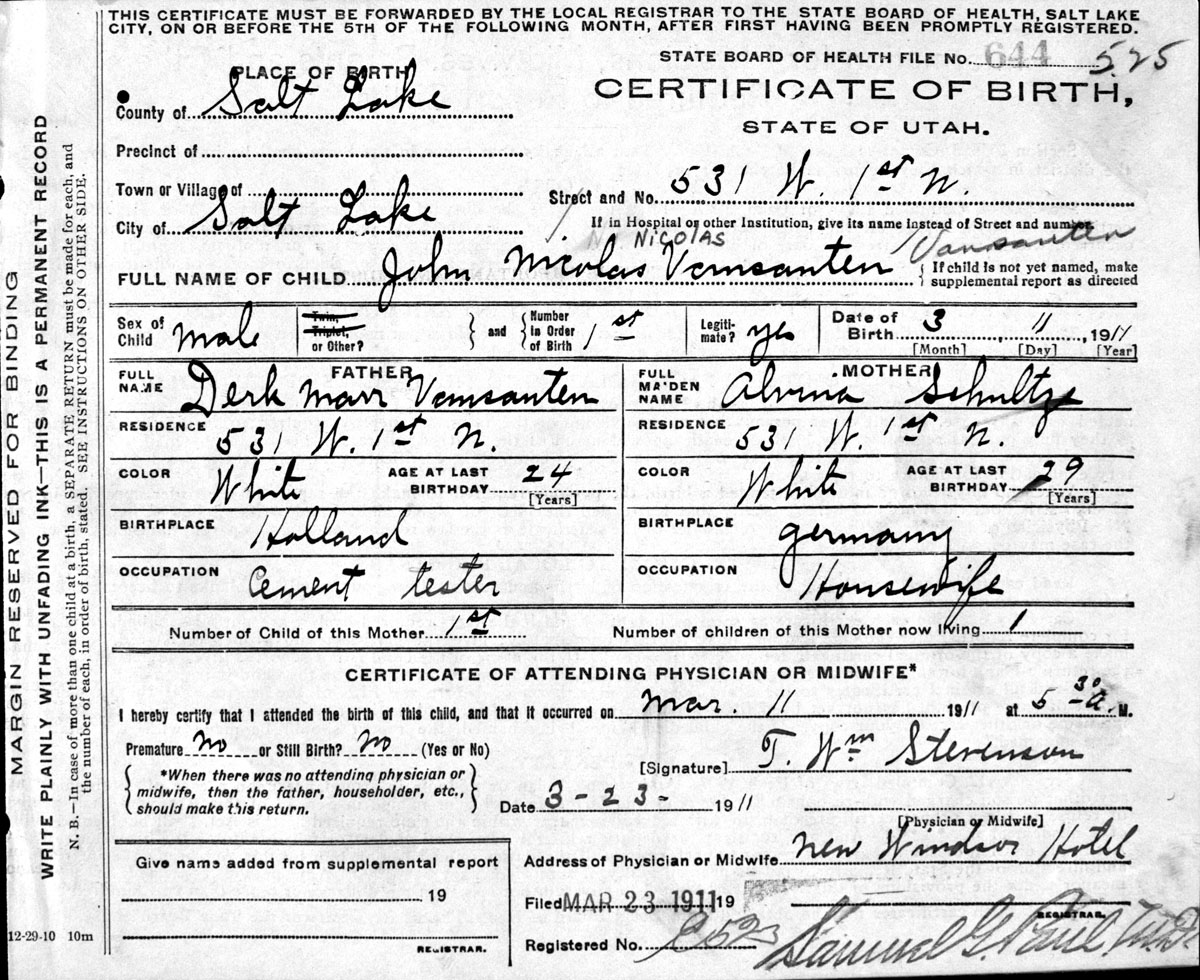 THIS CERTIFICATE MUST BE FORWARDED BY THE LOCAL REGISTRAR TO THE STATE BOARD OF HEALTH, SALT LAKE
CITY, ON OR BEFORE THE 5TH OF THE FOLLOWING MONTH, AFTER FIRST HAVING BEEN PROMPTLY REGISTERED.
STATE BOARD OF HEALTH FILE No. 644 525
PLACE OF BIRTH
CERTIFICATE OF BIRTH,
County of Salt Lake
STATE OF UTAH.
Precinct of
Town or Village of
Street and No. 531 W. 1st N.
City of Salt Lake
If in Hospital or other Institution, give its name instead of Street and number.
NICOLAS Vansanten
FULL NAME OF CHILD John Nicolas Vansanten
If child is not yet named, make
supplemental report as directed
Sex of Child male
Twin, Triplet, or Other?
and Number in Order of Birth 1st
Legitimate? yes
Date of Birth 3 11 1911
[Month] [Day] [Year]
FATHER
FULL NAME Derk Marr Vansanten
RESIDENCE 531 W. 1st N.
COLOR White AGE AT LAST BIRTHDAY 24 [Years]
BIRTHPLACE Holland
OCCUPATION Cement tester
MOTHER
FULL MAIDEN NAME Alvina Schultze
RESIDENCE 531 W. 1st N.
COLOR White AGE AT LAST BIRTHDAY 29 [Years]
BIRTHPLACE Germany
OCCUPATION Housewife
Number of Child of this Mother 1st Number of children of this Mother now living 1
CERTIFICATE OF ATTENDING PHYSICIAN OR MIDWIFE*
I hereby certify that I attended the birth of this child, and that it occurred on Mar. 11 1911 at 5 30 a. M.
Premature No or Still Birth? No (Yes or No)
[Signature] T. Wm Stevenson
*When there was no attending physician or
midwife, then the father, householder, etc.,
should make this return.
Date 3-23- 1911
[Physician or Midwife]
Address of Physician or Midwife New Windsor Hotel
Give name added from supplemental report
19
REGISTRAR.
Filed MAR 23 1911 19
REGISTRAR.
Registered No. 2523
Samuel G. Paul M.D.
12-29-10 10m
MARGIN RESERVED FOR BINDING
WRITE PLAINLY WITH UNFADING INK—THIS IS A PERMANENT RECORD
N. B.—In case of more than one child at a birth, a SEPARATE RETURN must be made for each, and
the number of each, in order of birth, stated. SEE INSTRUCTIONS ON OTHER SIDE.